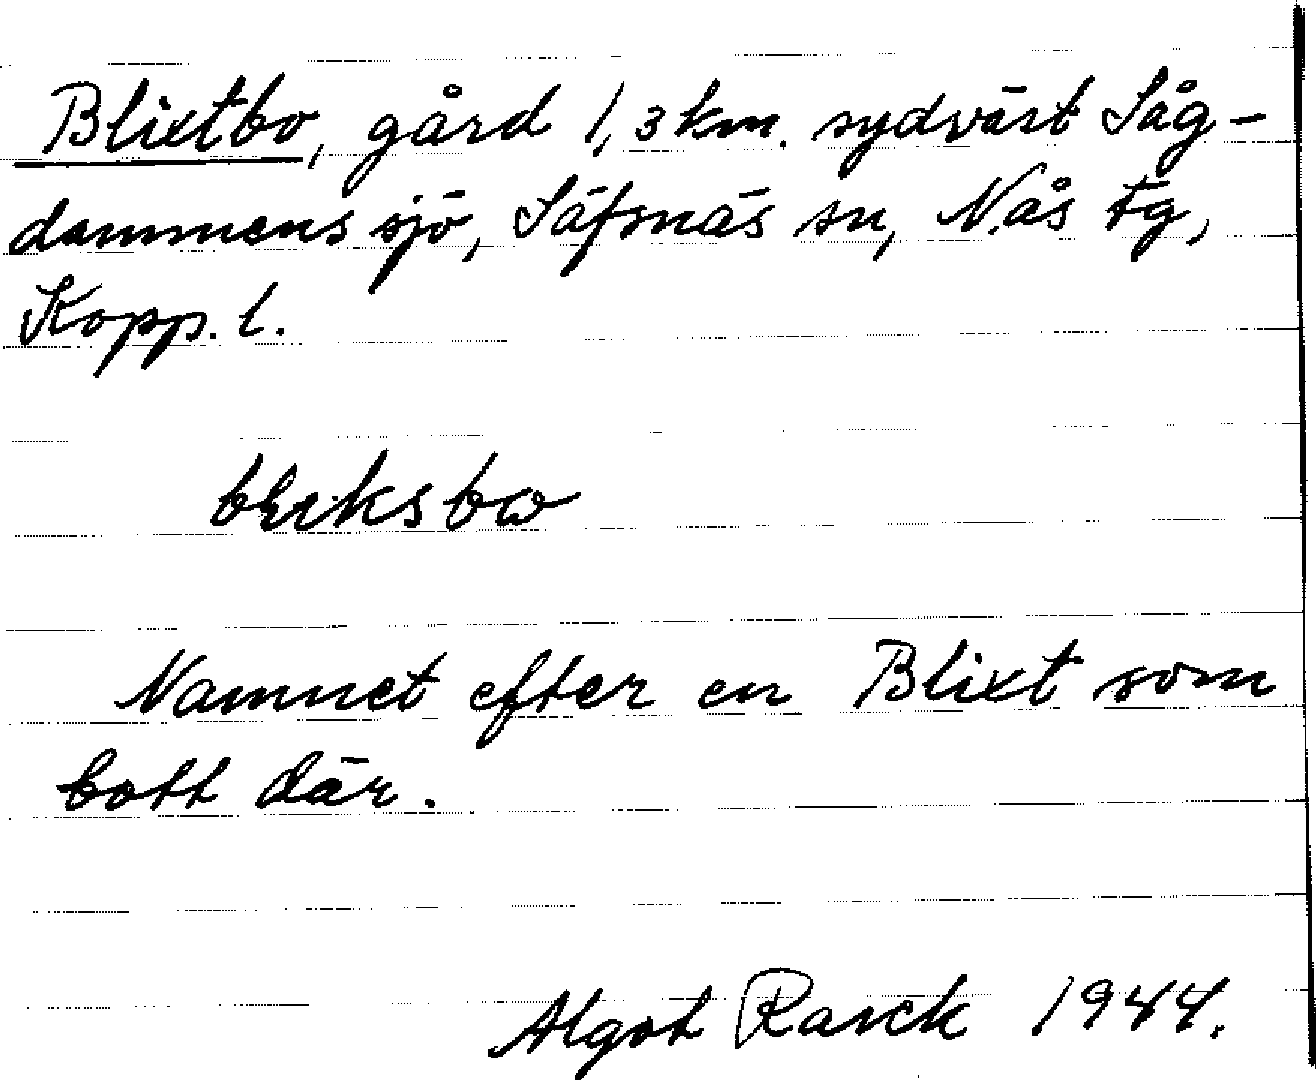 Blixtbo, gård 1,3 km. sydväst Såg-
dammens sjö, Säfsnäs sn, Nås tg,
Kopp. l.
bliksbo
Namnet efter en Blixt som
bott där.
Algot Rarck 1944.